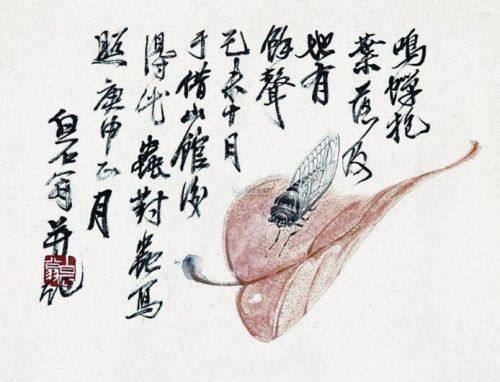 鳴蟬抱
葉落及
地有
餘聲
己未十月
于借山館後
得此蟲對蟲寫
照庚申正月
白石翁并記